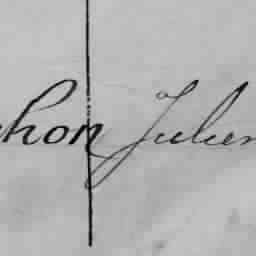 chon Julien